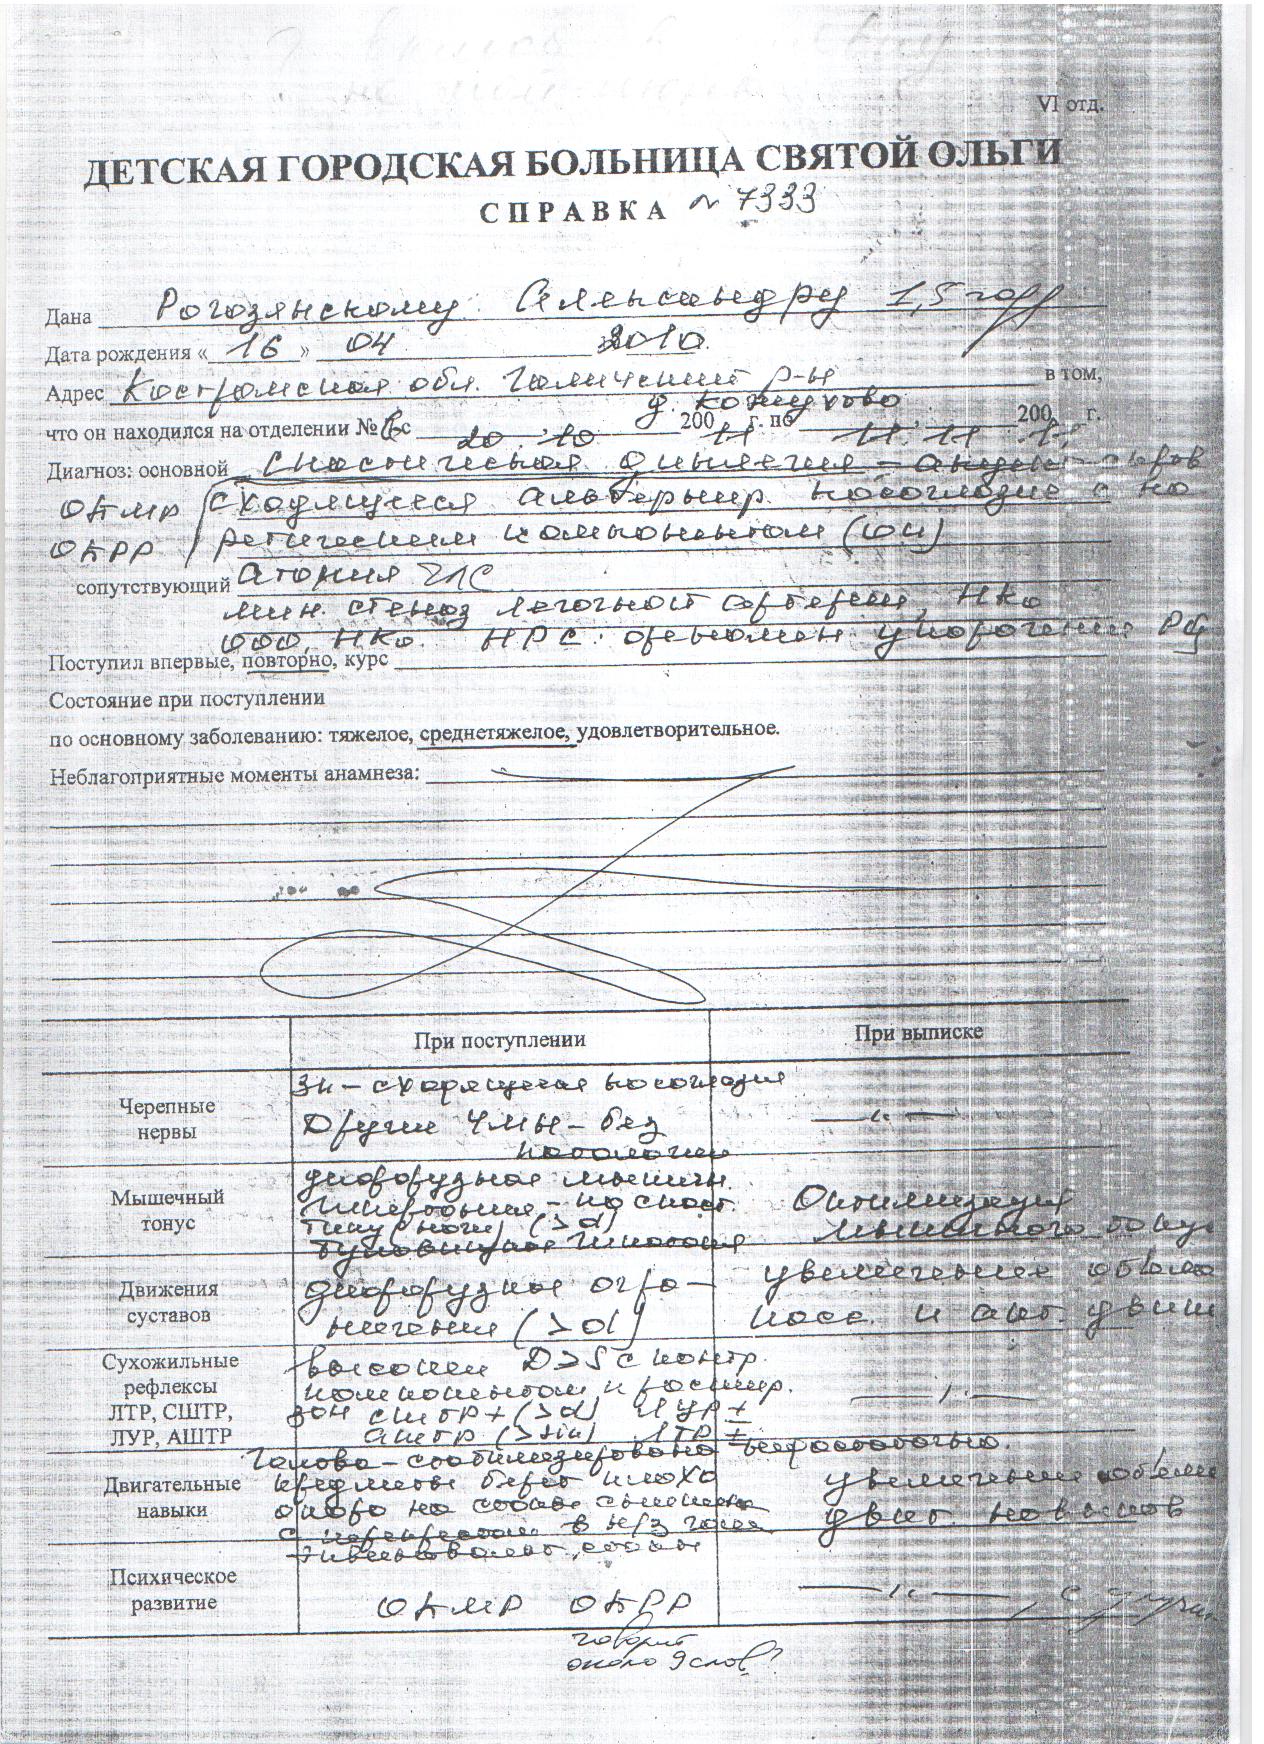 VI отд.
ДЕТСКАЯ ГОРОДСКАЯ БОЛЬНИЦА СВЯТОЙ ОЛЬГИ
СПРАВКА № 7333
Дана Рогозянскому Александру 1,5 года
Дата рождения «16» 04 2010
Адрес Костромская обл. Галичский р-н в том,
д. Кожухово
что он находился на отделении № 6 с 20.10 200 11 г. по 11.11 200 11 г.
Диагноз: основной Спастическая диплегия
ОКМР сходящееся альтернир. косоглазие с
ОКРР паретическим компонентом (ОИ)
сопутствующий Атония ЧЛС
мин. стеноз легочной артерии, НКо
ООО, НКо. НРС: феномен укорочения PQ
Поступил впервые, повторно, курс
Состояние при поступлении
по основному заболеванию: тяжелое, среднетяжелое, удовлетворительное.
Неблагоприятные моменты анамнеза:
При поступлении При выписке
Черепные
нервы
ЗН – сходящееся косоглазие
Другие ЧМН – без
патологии
—〃—
Мышечный
тонус
диффузная мышечн.
гипертония – по спаст.
типу (ноги) (>d)
туловищная гипотония
Оптимизация
мышечного тонуса
Движения
суставов
диффузное огра-
ничение (>d)
увеличение объема
пасс. и акт. движ
Сухожильные
рефлексы
ЛТР, СШТР,
ЛУР, АШТР
высокие D>S с контр.
компонентом и расшир.
зон СШТР+ (>d) ЛУР±
АШТР (>sin) ЛТР±
—〃—
Двигательные
навыки
Голова – стабилизирована
предметы берет плохо
опора на стопы
с перекрестом в н/з голени
увеличение объема
двиг. навыков
Психическое
развитие
ОКМР ОКРР
говорит
около 9 слов
—〃—, с улучш.